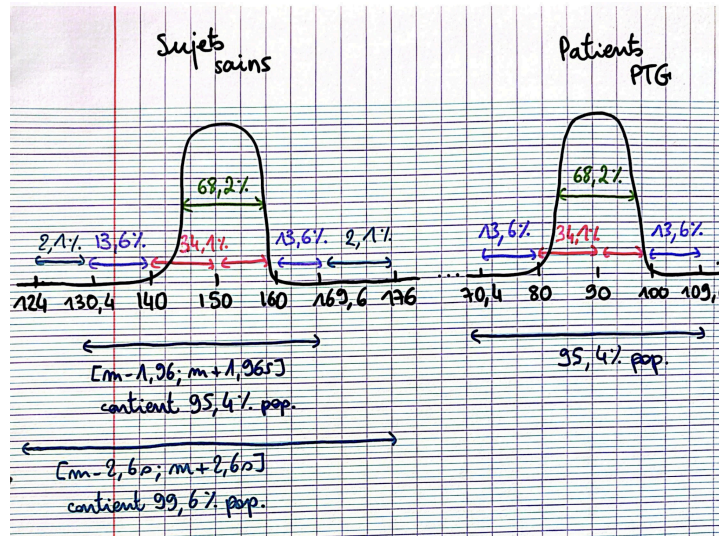 Sujets
sains
Patients
PTG
68,2%
68,2%
2,1% 13,6% 34,1% 13,6% 2,1%
13,6% 34,1% 13,6%
124 130,4 140 150 160 169,6 176 ... 70,4 80 90 100 109,
[m-1,96; m+1,96s]
contient 95,4% pop.
95,4% pop.
[m-2,6s; m+2,6s]
contient 99,6% pop.